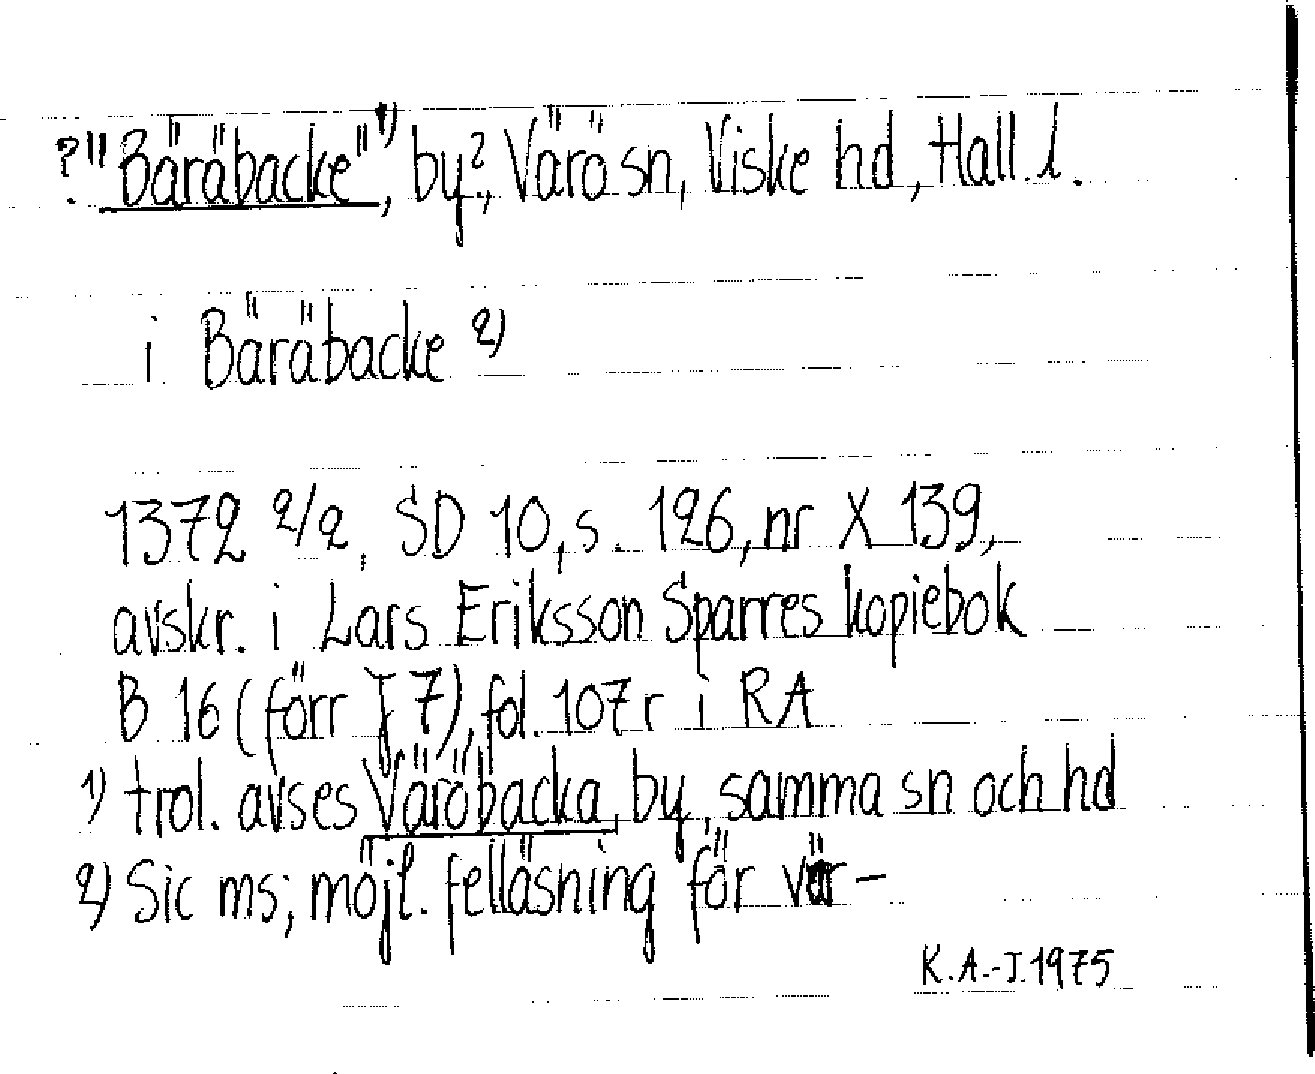 ?"Bäräbacke"¹⁾, by?, Värö sn, Viske hd, Hall l.
i Bäräbacke ²⁾
1372 2/2, SD 10, s. 126, nr X 139,
avskr. i Lars Eriksson Sparres kopiebok
B 16 (förr J 7), fol. 107 r i RA
1) trol. avses Väröbacka, by, samma sn och hd
2) Sic ms; möjl. felläsning för vär-
K.A.-J. 1975